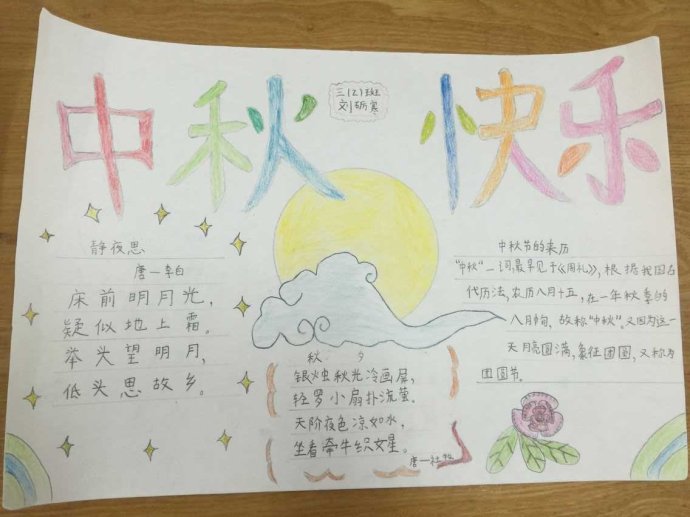 中秋快乐
三(2)班
刘砺寒
静夜思
唐一李白
床前明月光,
疑似地上霜。
举头望明月,
低头思故乡。
秋夕
银烛秋光冷画屏,
轻罗小扇扑流萤。
天阶夜色凉如水,
坐看牵牛织女星。
唐一杜牧
中秋节的来历
"中秋"一词,最早见于《周礼》,根据我国古
代历法,农历八月十五,在一年秋季的
八月旬,故称"中秋"。又因为这一
天月亮圆满,象征团圆,又称为
团圆节。